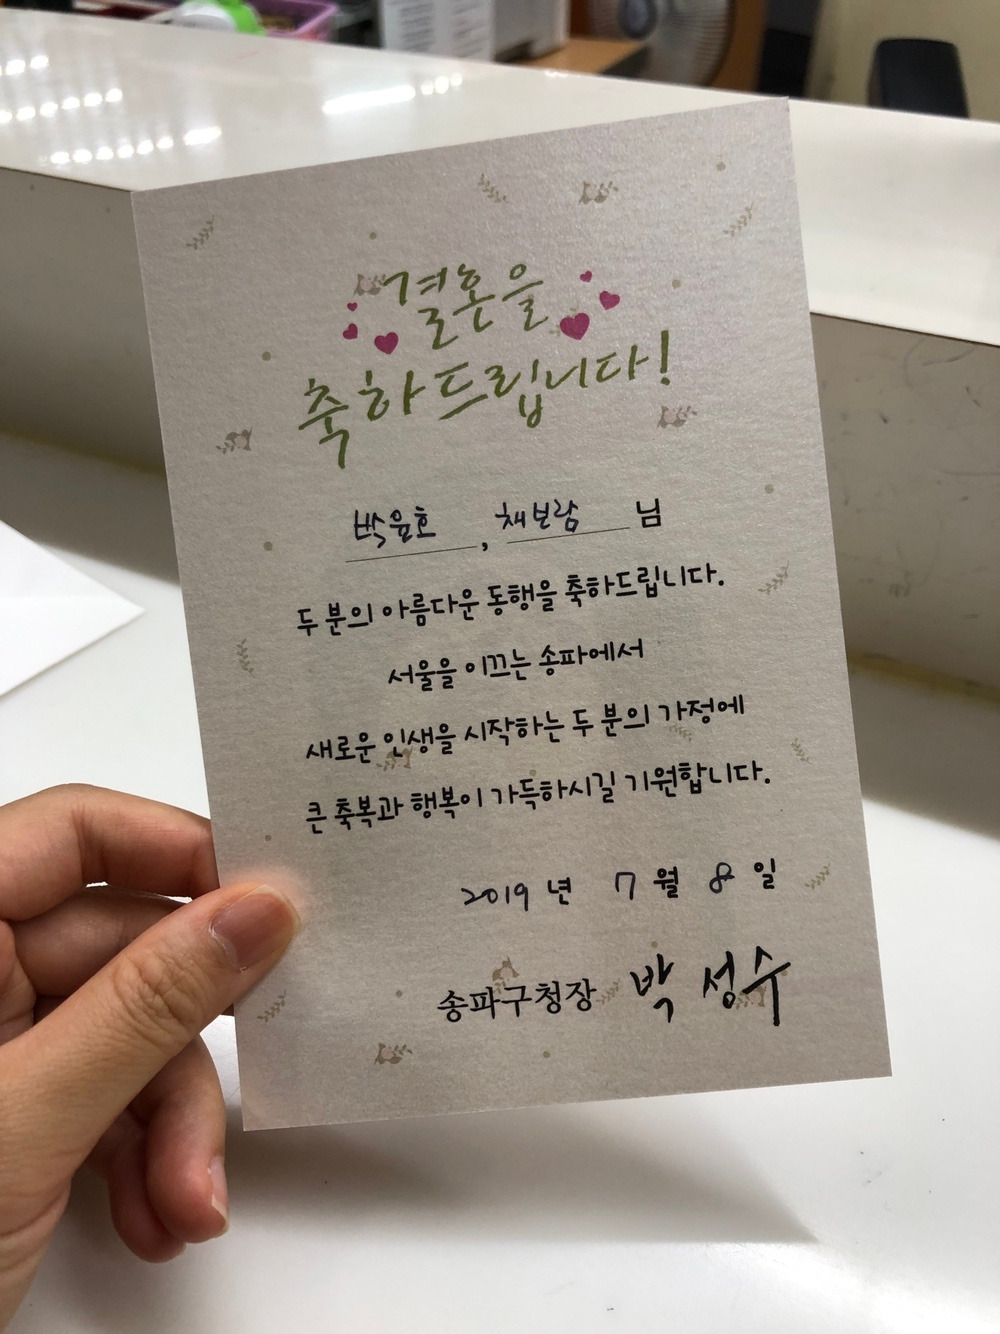 결혼을
축하드립니다!
박윤호, 채보람 님
두 분의 아름다운 동행을 축하드립니다.
서울을 이끄는 송파에서
새로운 인생을 시작하는 두 분의 가정에
큰 축복과 행복이 가득하시길 기원합니다.
2019 년 7 월 8 일
송파구청장 박성수